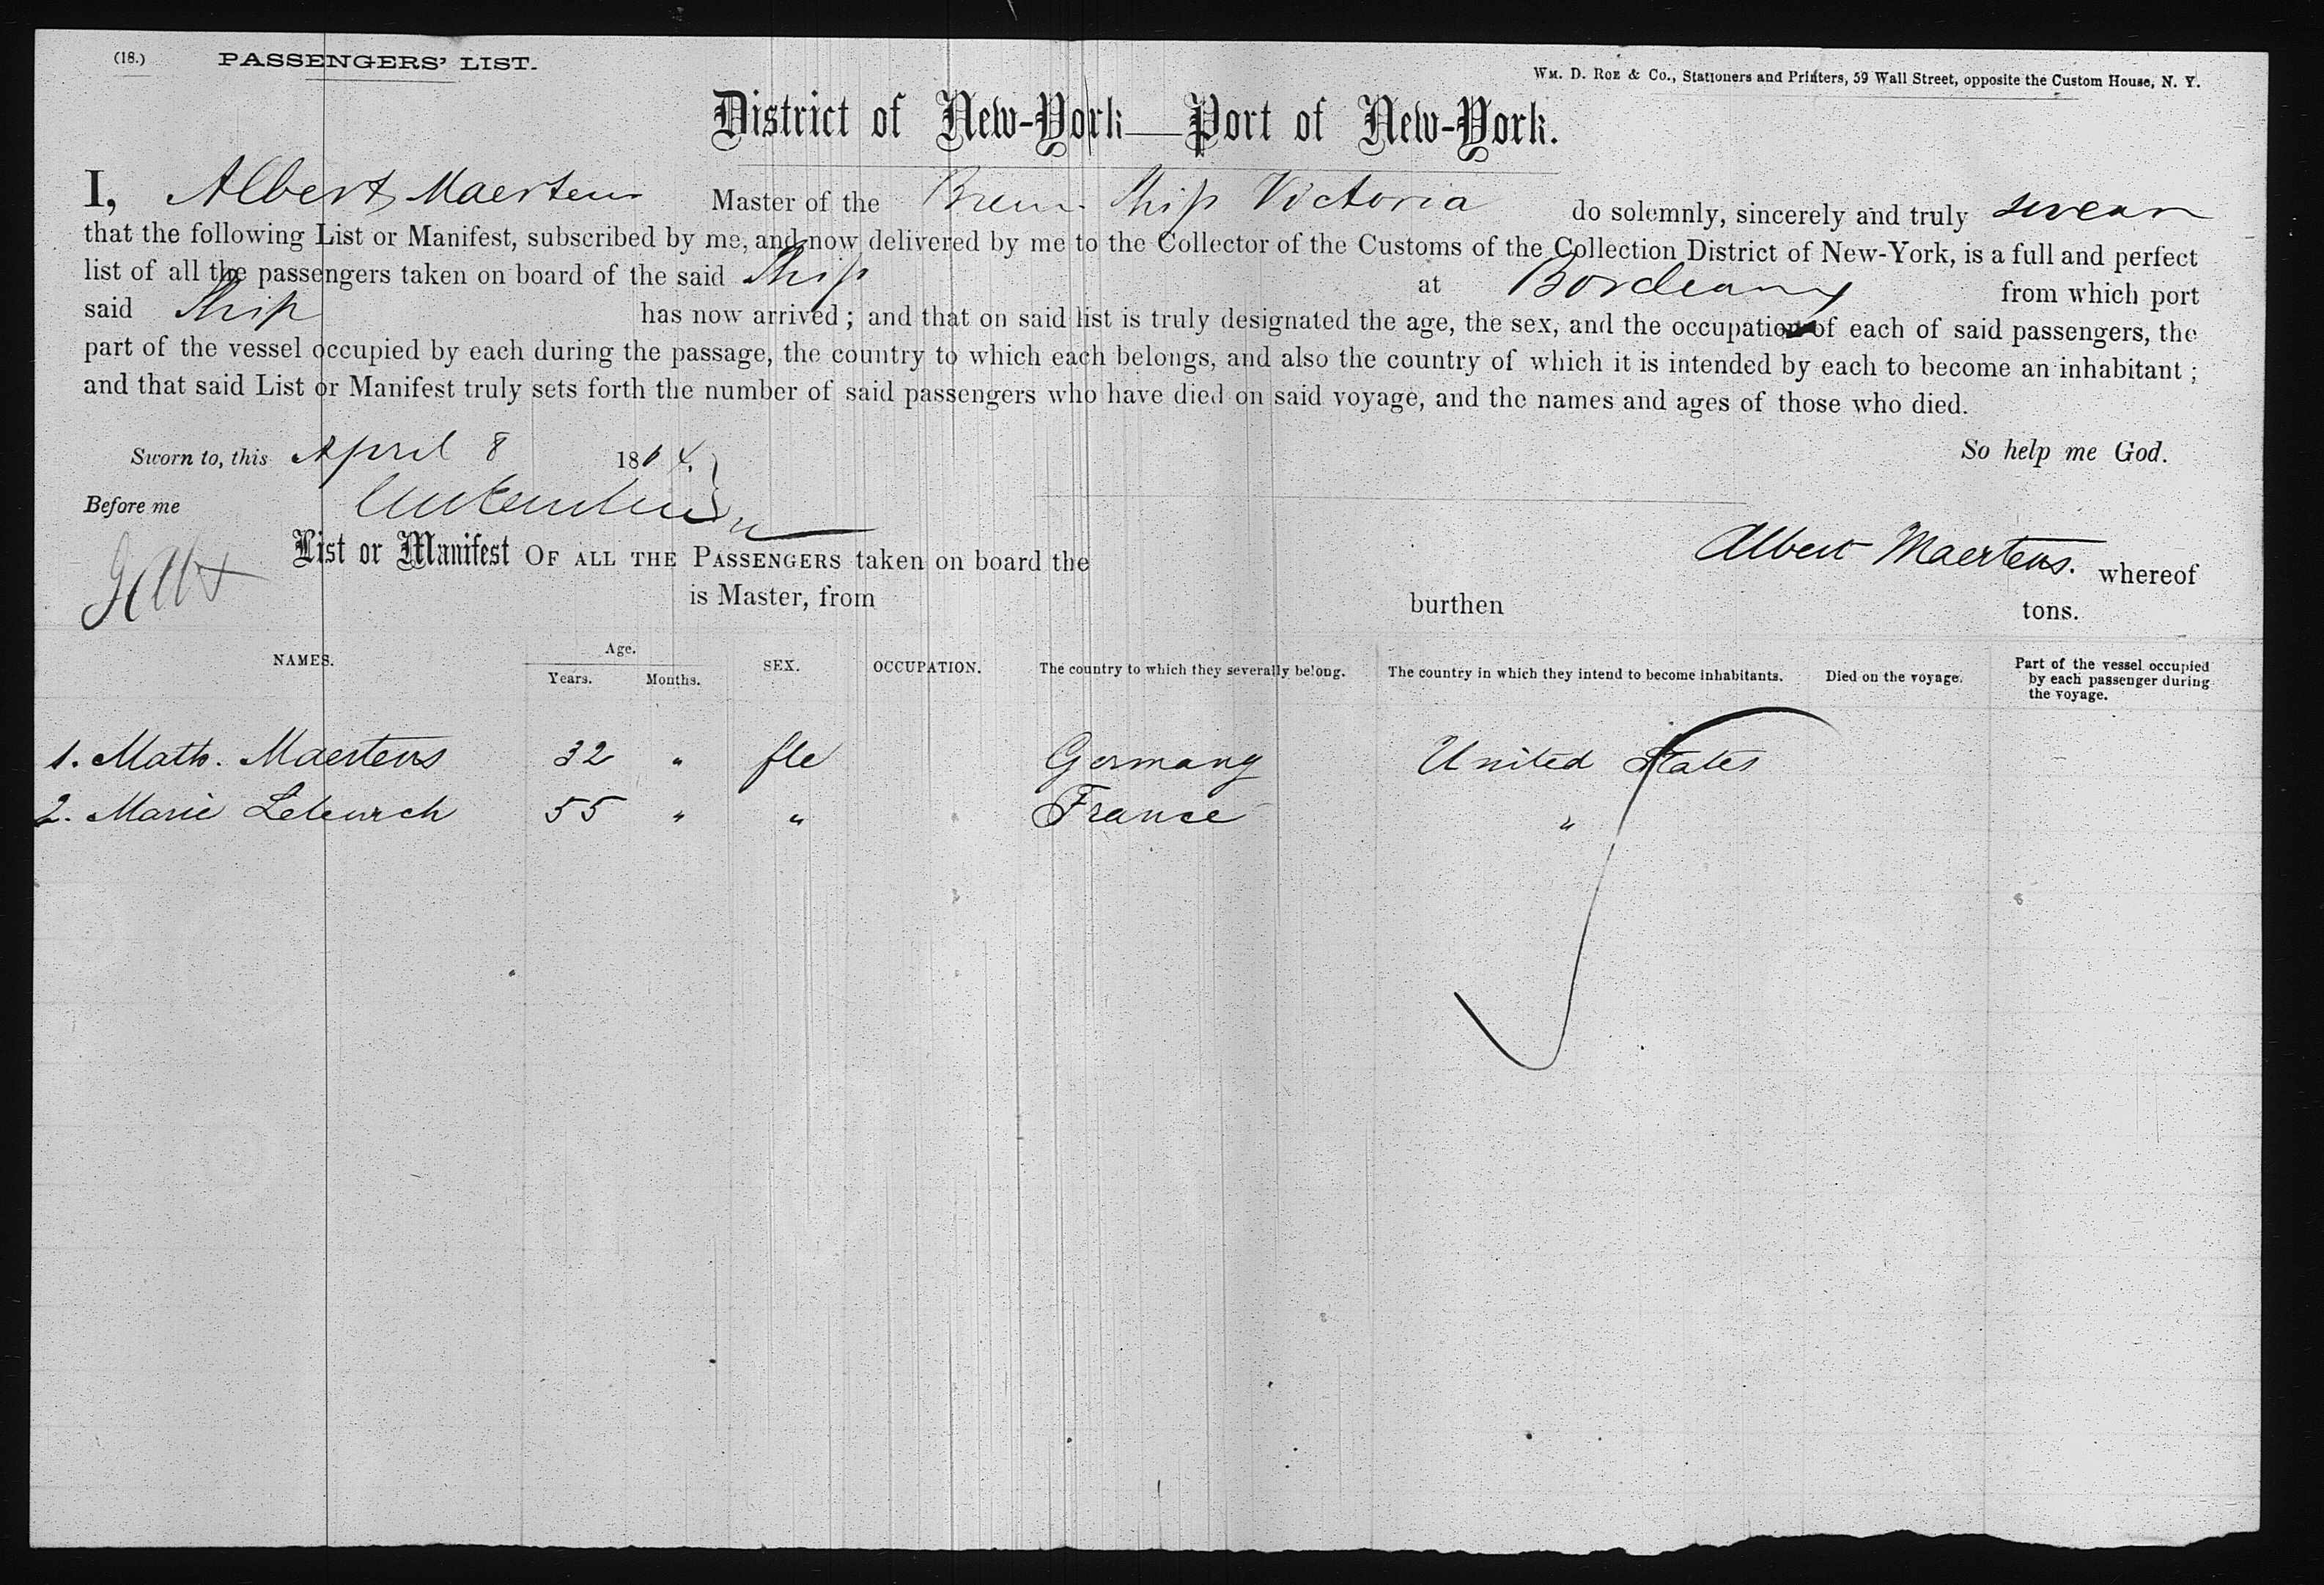 (18.) PASSENGERS' LIST.
Wm. D. Roe & Co., Stationers and Printers, 59 Wall Street, opposite the Custom House, N. Y.
District of New-York—Port of New-York.
I, Albert Maertens Master of the Brem. Ship Victoria do solemnly, sincerely and truly swear
that the following List or Manifest, subscribed by me, and now delivered by me to the Collector of the Customs of the Collection District of New-York, is a full and perfect
list of all the passengers taken on board of the said Ship at Bordeaux from which port
said Ship has now arrived; and that on said list is truly designated the age, the sex, and the occupation of each of said passengers, the
part of the vessel occupied by each during the passage, the country to which each belongs, and also the country of which it is intended by each to become an inhabitant;
and that said List or Manifest truly sets forth the number of said passengers who have died on said voyage, and the names and ages of those who died.
Sworn to, this April 8 1864. So help me God.
Before me
Albert Maertens.
List or Manifest OF ALL THE PASSENGERS taken on board the whereof
is Master, from burthen tons.
NAMES. Age. Years. Months. SEX. OCCUPATION. The country to which they severally belong. The country in which they intend to become inhabitants. Died on the voyage. Part of the vessel occupied by each passenger during the voyage.
1. Math. Maertens 32 " fle Germany United States
2. Marie 55 " " France "